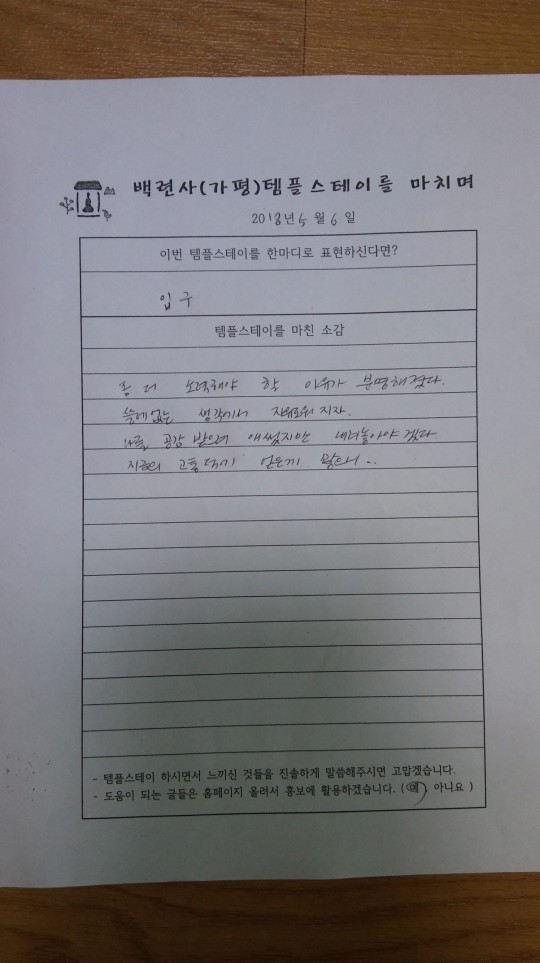 백련사(가평)템플스테이를 마치며
2018년 5월 6일
이번 템플스테이를 한마디로 표현하신다면?
입구
템플스테이를 마친 소감
좀 더 노력해야 할 이유가 분명해졌다.
쓸데없는 생각에서 자유로워지자.
나를 공감 받으려 애썼지만 내려놓아야겠다.
지금의 고통
- 템플스테이 하시면서 느끼신 것들을 진솔하게 말씀해주시면 고맙겠습니다.
- 도움이 되는 글들은 홈페이지 올려서 홍보에 활용하겠습니다. ( 예, 아니요 )